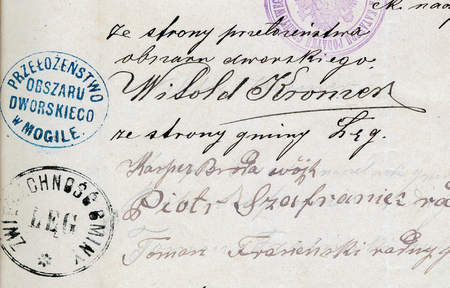 ze strony przełożeństwa
obszaru dworskiego.
Witold Kromer
ze strony gminy Łęg.
Kasper Broda wójt
Piotr Szafraniec
Tomasz radny
PRZEŁOŻEŃSTWO
OBSZARU
DWORSKIEGO
w MOGILE.
ZWIERZCHNOŚĆ GMINY
ŁĘG